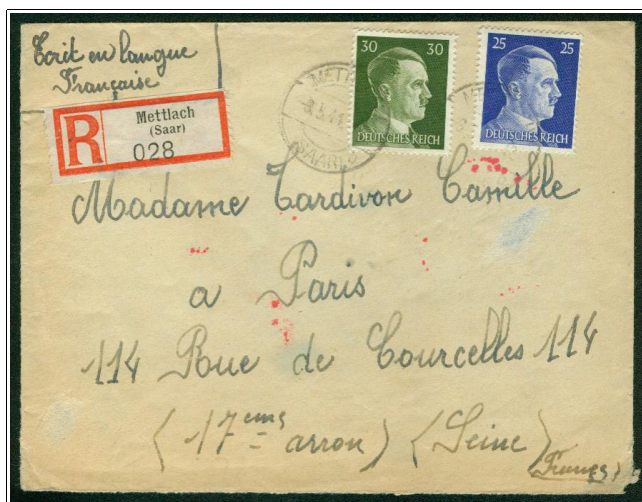 Ecrit en langue
Française
R
Mettlach
(Saar)
028
30 30
DEUTSCHES REICH
25 25
DEUTSCHES REICH
Madame Tardivon Camille
a Paris
114 Rue de Courcelles 114
(17ems arron) (Seine)